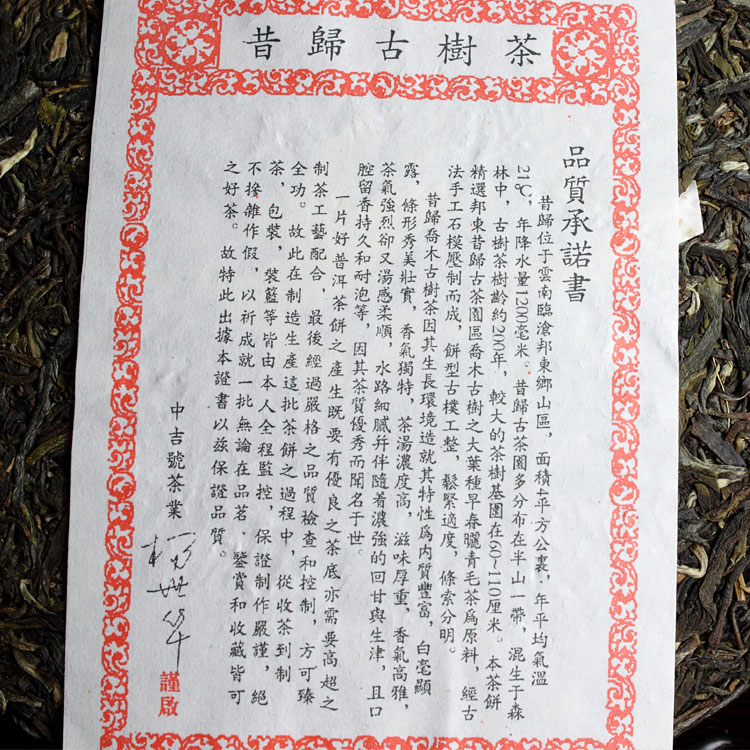 昔歸古樹茶
品質承諾書
昔歸位于雲南臨滄邦東鄉山區，面積4平方公裏，年平均氣溫
21℃，年降水量1200毫米。昔歸古茶園多分布在半山一帶，混生于森
林中，古樹茶樹齡約200年，較大的茶樹基圍在60~110厘米。本茶餅
精選邦東昔歸古茶園區喬木古樹之大葉種早春曬青毛茶爲原料，經古
法手工石模壓制而成，餅型古樸工整，鬆緊適度，條索分明。
昔歸喬木古樹茶因其生長環境造就其特性爲内質豐富，白毫顯
露，條形秀美壯實，香氣獨特，茶湯濃度高，滋味厚重，香氣高雅，
茶氣強烈卻又湯感柔順，水路細膩并伴隨着濃強的回甘與生津，且口
腔留香持久和耐泡等，因其茶質優秀而聞名于世。
一片好普洱茶餅之產生既要有優良之茶底亦需要高超之
制茶工藝配合，最後經過嚴格之品質檢查和控制，方可臻
全功。故此在制造生產這批茶餅之過程中，從收茶到制
茶，包裝，裝籃等皆由本人全程監控，保證制作嚴謹，絕
不摻雜作假，以祈成就一批無論在品茗，鑒賞和收藏皆可
之好茶。故特此出據本證書以兹保證品質。
中吉號茶業
謹啟